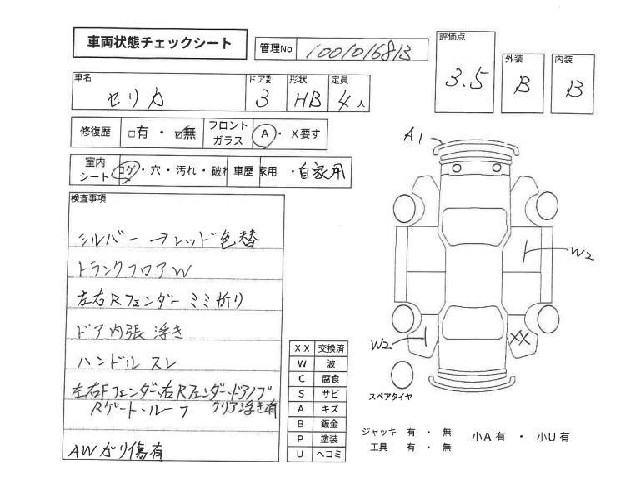 車両状態チェックシート
管理No 1001015813
評価点 3.5
外装 B
内装 B
車名 セリカ
ドア数 3
形状 HB
定員 4人
修復歴 □有 ・ ☑無
フロントガラス A ・ X要す
室内シート コゲ・穴・汚れ・破れ
車歴 家用 ・自家用
検査事項
シルバー→レッド色替
トランクフロアW
左右Rフェンダーミミ折り
ドア内張浮き
ハンドルスレ
左右Fフェンダー、右Rフェンダー、ドアノブ
Rゲート、ルーフ クリア浮き有
AWガリ傷有
XX 交換済
W 波
C 腐食
S サビ
A キズ
B 鈑金
P 塗装
U ヘコミ
A1
W2
W2
XX
スペアタイヤ
ジャッキ 有 ・ 無
工具 有 ・ 無
小A 有 ・ 小U 有